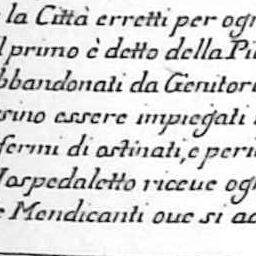 la Città erretti per ogn
l primo è detto della Pie
bbandonati da Genitori
sino essere impiegati
fermi di ostinati, e peri
Hospedaletto riceue og
e Mendicanti oue si ac